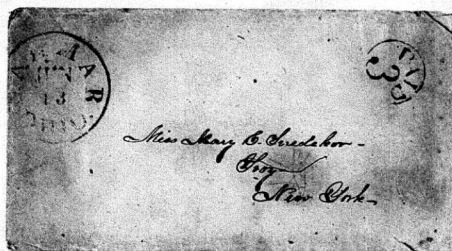 MAR
13
PAID
3
Miss Mary E. Snedekor -
Troy
New York -